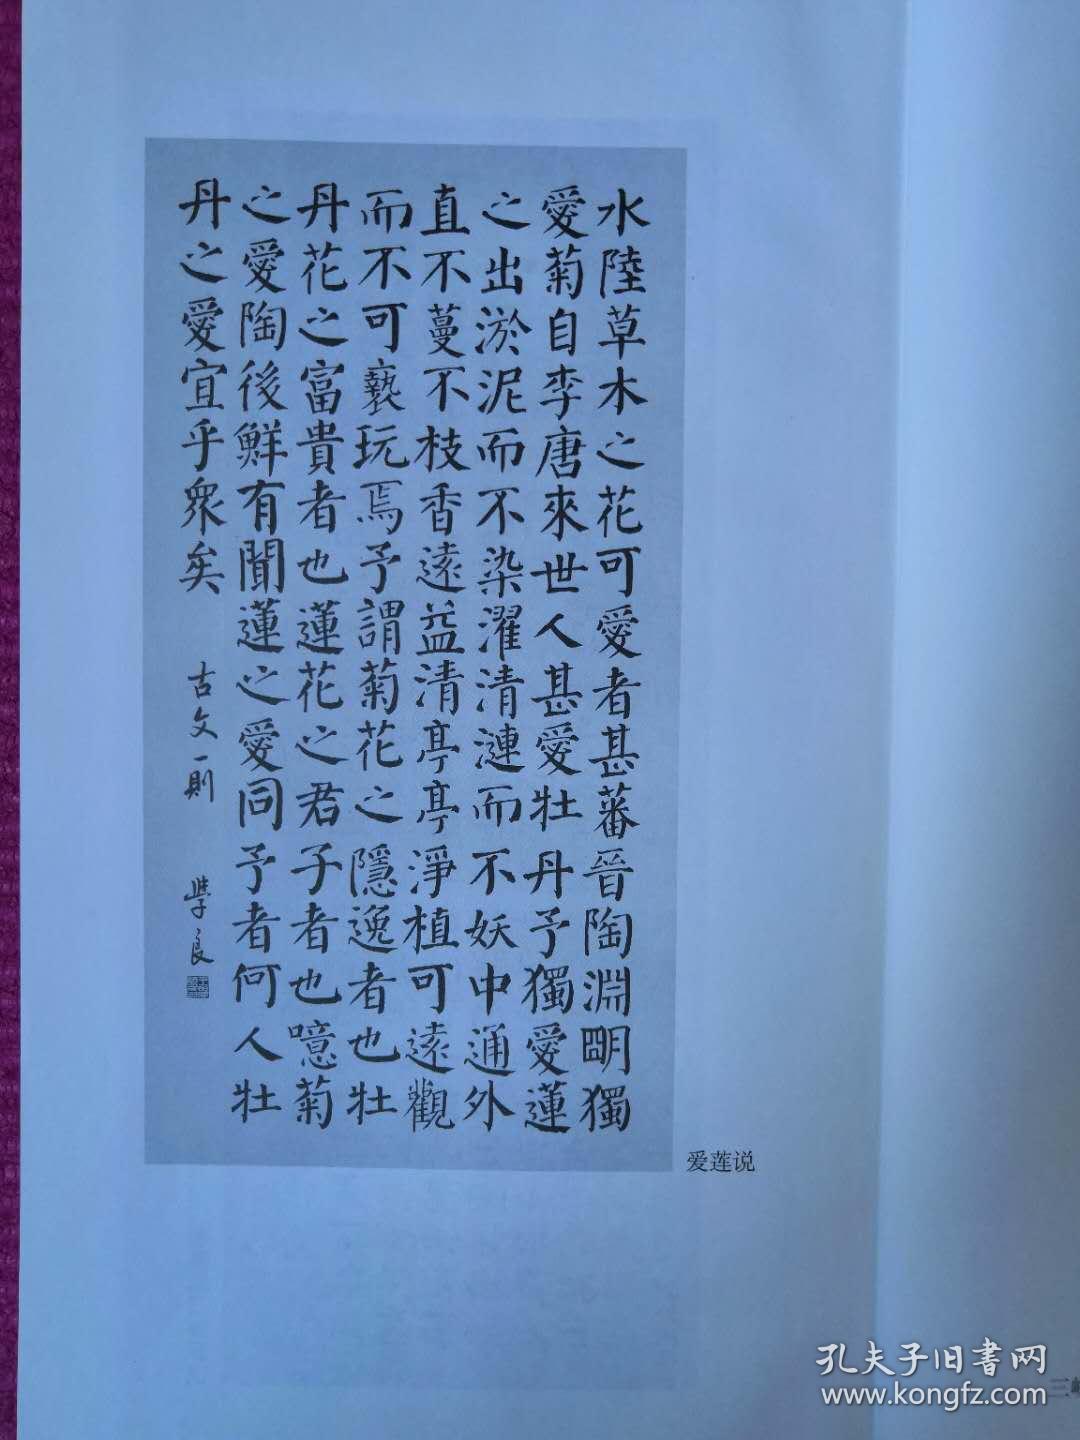 水陸草木之花可愛者甚蕃晉陶淵明獨
愛菊自李唐來世人甚愛牡丹予獨愛蓮
之出淤泥而不染濯清漣而不妖中通外
直不蔓不枝香遠益清亭亭淨植可遠觀
而不可褻玩焉予謂菊花之隱逸者也牡
丹花之富貴者也蓮花之君子者也噫菊
之愛陶後鮮有聞蓮之愛同予者何人牡
丹之愛宜乎眾矣
古文一則
學良
爱莲说
孔夫子旧书网
www.kongfz.com
三